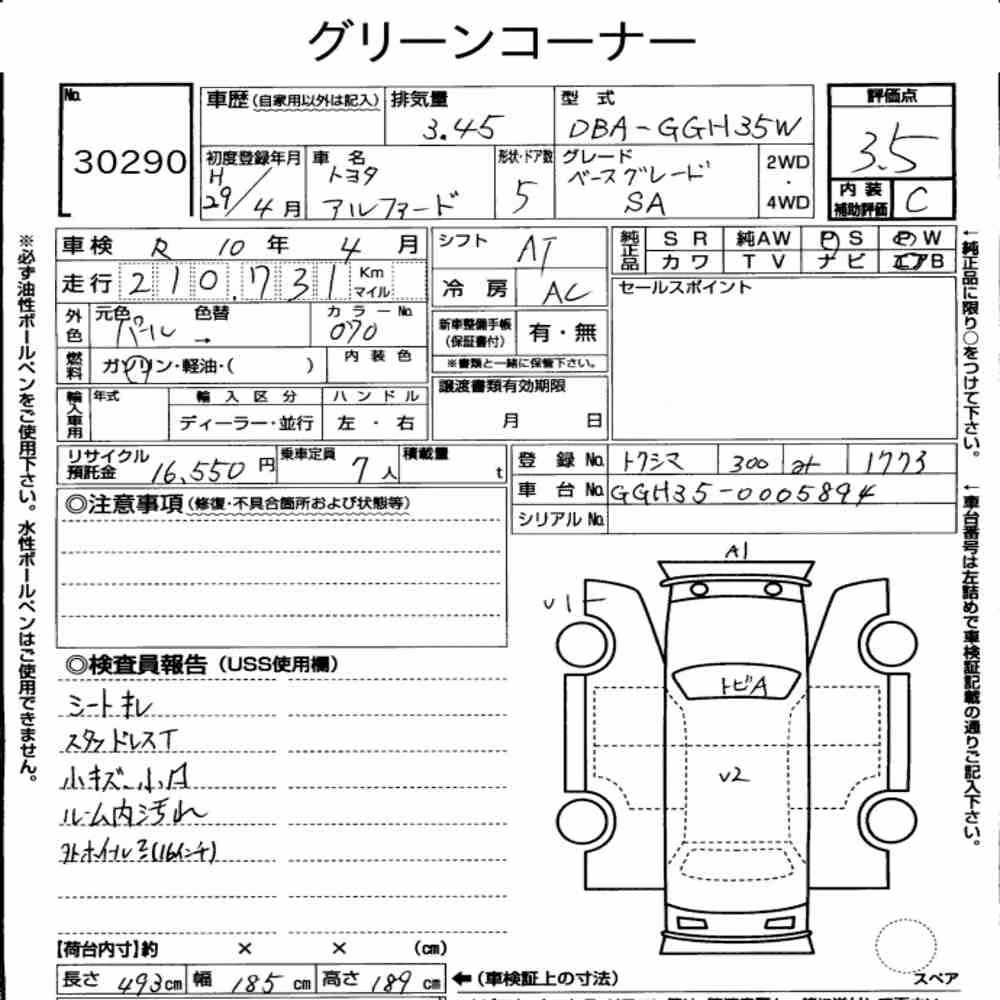 グリーンコーナー
No. 30290
車歴(自家用以外は記入)
排気量 3.45
型式 DBA-GGH35W
評価点 3.5
初度登録年月 H29/4月
車名 トヨタ アルファード
形状・ドア数 5
グレード ベースグレード SA
2WD・4WD
内装補助評価 C
車検 R 10年 4月
走行 210,731 Km マイル
外色 元色 パール → 色替
カラーNo. 070
燃料 ガソリン・軽油・( )
内装色
輸入車用 年式 輸入区分 ハンドル
ディーラー・並行 左・右
シフト AT
冷房 AC
新車整備手帳(保証書付) 有・無
※書類と一緒に保管下さい。
譲渡書類有効期限
月 日
純正品 SR 純AW PS PW
カワ TV ナビ エアB
セールスポイント
リサイクル預託金 16,550円
乗車定員 7人
積載量 t
登録No. トクシマ 300 1773
車台No. GGH35-0005894
シリアルNo.
◎注意事項(修復・不具合箇所および状態等)
◎検査員報告(USS使用欄)
シートキレ
スタッドレスT
小キズ 小凹
ルーム内汚れ
(16インチ)
A1
U1
トビA
U2
【荷台内寸】約 × × (cm)
長さ 493cm 幅 185cm 高さ 189cm
←(車検証上の寸法)
スペア
※必ず油性ボールペンをご使用下さい。水性ボールペンはご使用できません。
←純正品に限り○をつけて下さい。
←車台番号は左詰めで車検証記載の通りご記入下さい。